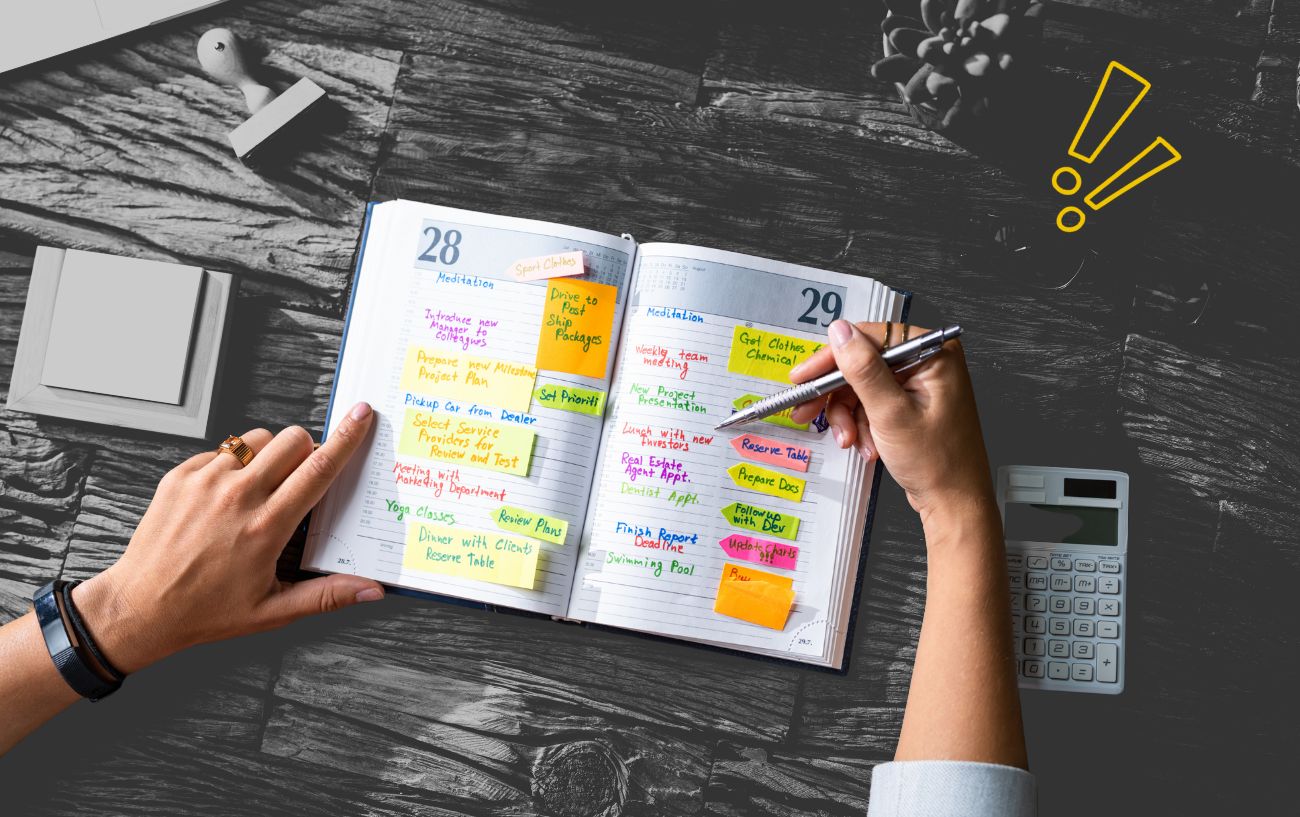 28
Sport Clothes
Meditation
Drive to
Post
Ship
Packages
Introduce new
Manager to
Colleagues
Prepare new Milestone
Project Plan
Set Prioriti
Pickup Car from Dealer
Select Service
Providers for
Review and Test
Meeting with
Marketing Department
Yoga Classes
Review Plans
Dinner with Clients
Reserve Table
28.7.
August
29
Meditation
Get Clothes f
Chemical
Weekly team
meeting
New Project
Presentation
Lunch with new
Investors
Reserve Table
Real Estate
Agent Appt.
Prepare Docs
Dentist Appt.
Followup
with Dev
Finish Report
Deadline
Update Charts
!!!
Swimming Pool
29.7.
DATE SET
TAX SET
%
TAX-
TAX+
MR
M-
M+
÷
7
8
9
×
4
5
6
-
1
2
3
+
0
.
=